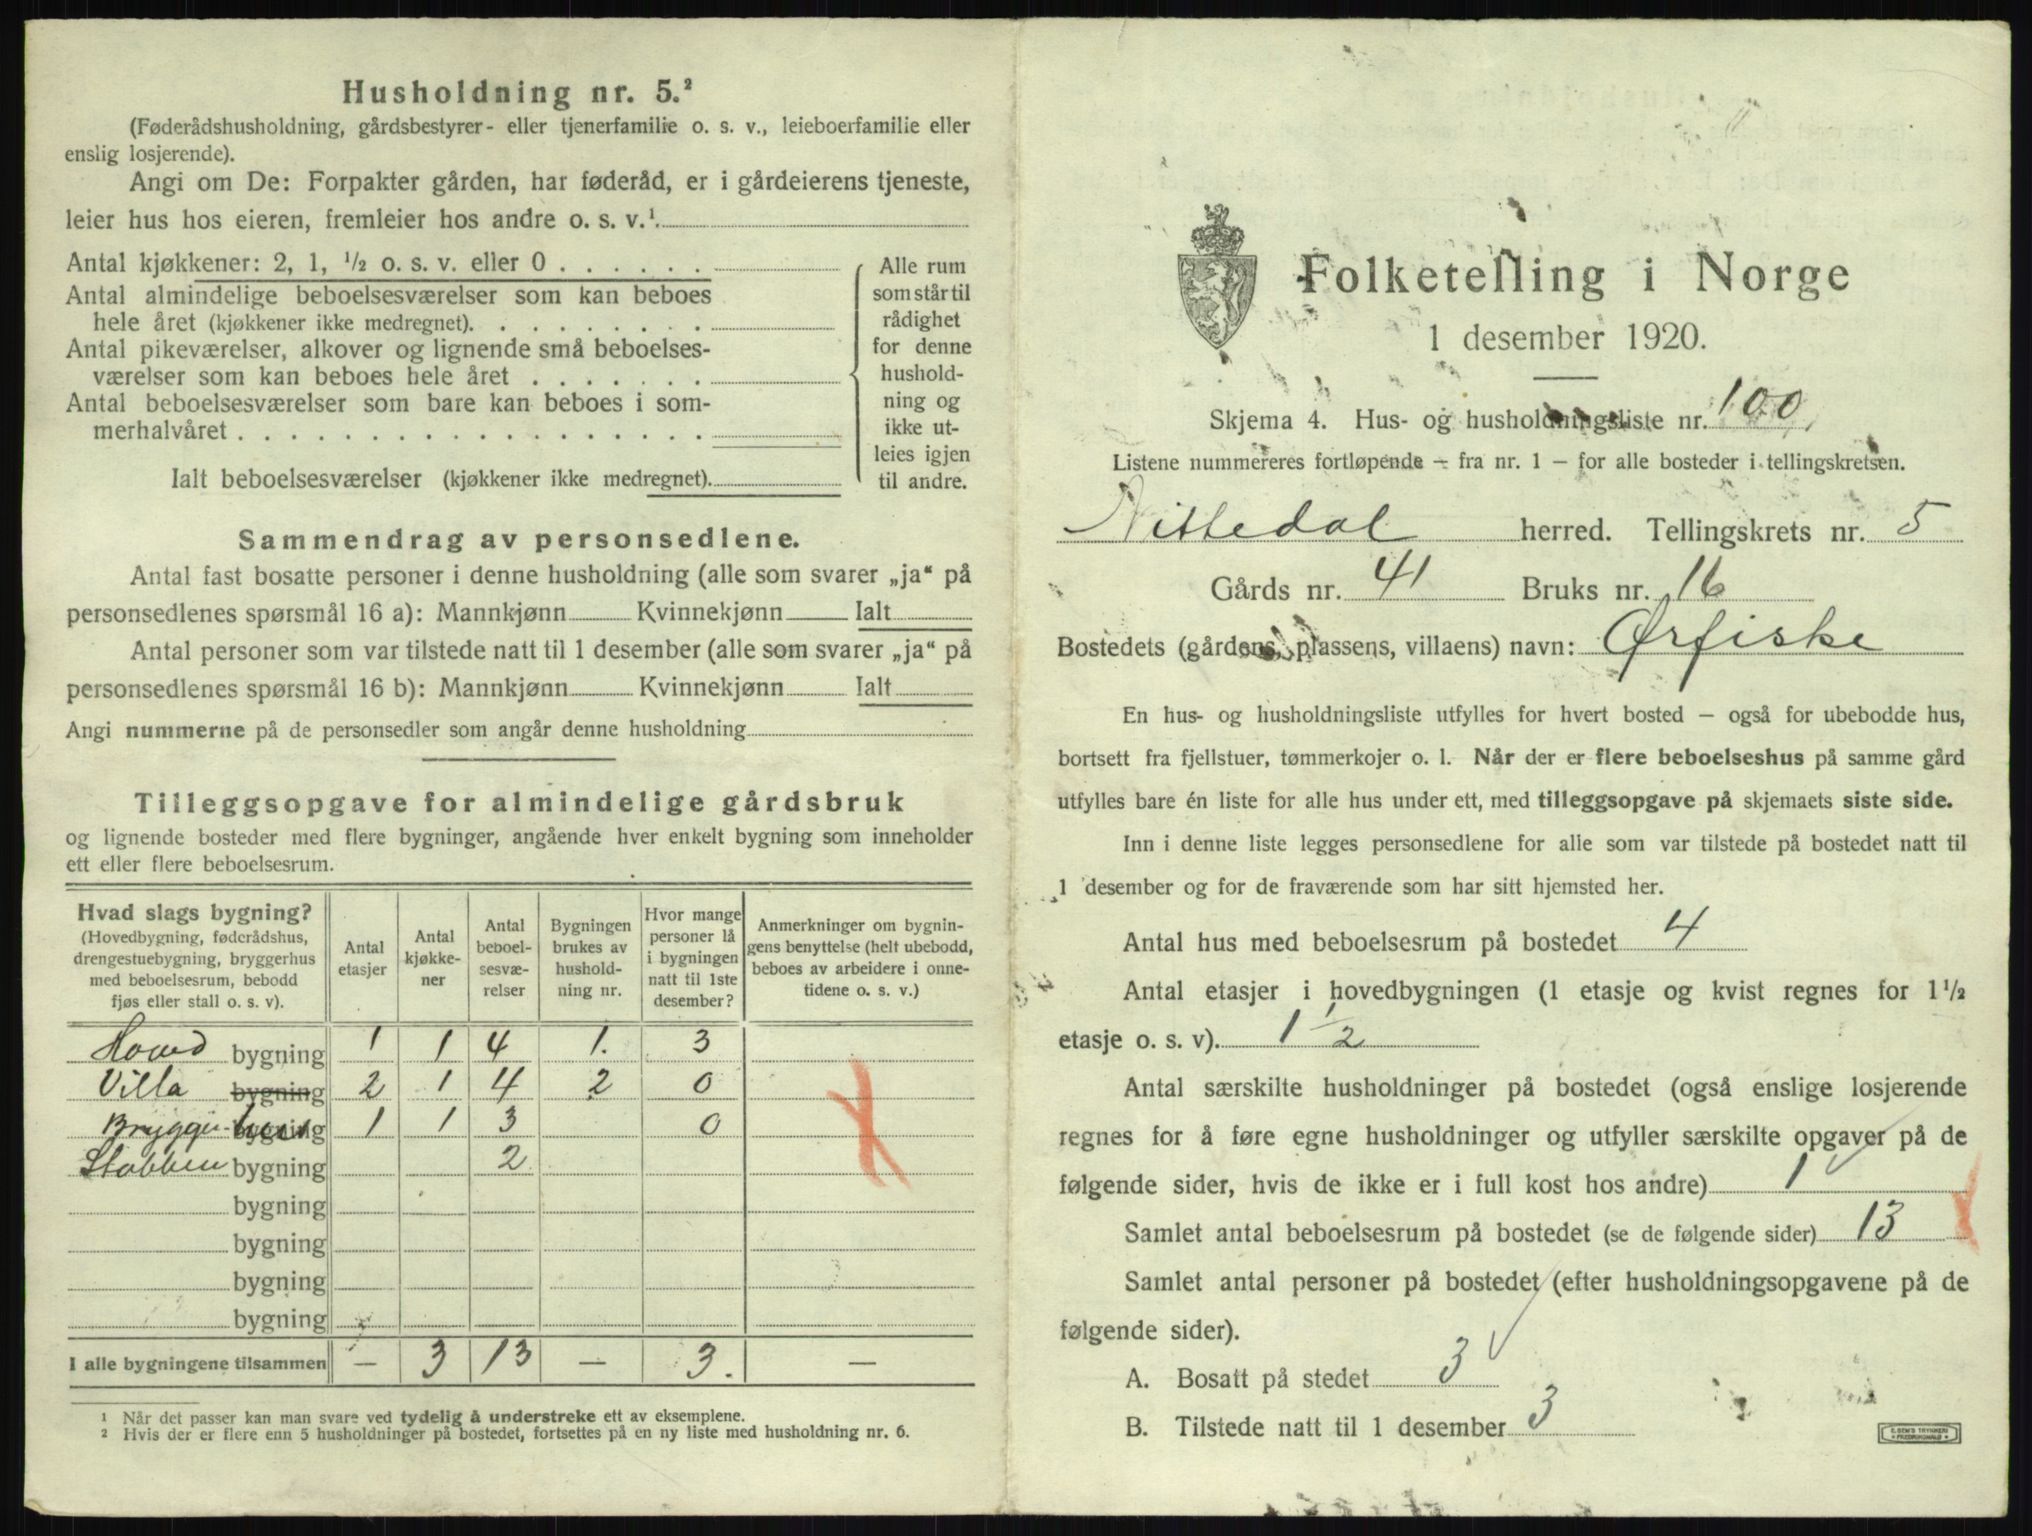 Husholdning nr. 5.²
(Føderådshusholdning, gårdsbestyrer- eller tjenerfamilie o. s. v., leieboerfamilie eller
enslig losjerende).
Angi om De: Forpakter gården, har føderåd, er i gårdeierens tjeneste,
leier hus hos eieren, fremleier hos andre o. s. v.¹
Antal kjøkkener: 2, 1, ½ o. s. v. eller 0
Antal almindelige beboelsesværelser som kan beboes
hele året (kjøkkener ikke medregnet).
Antal pikeværelser, alkover og lignende små beboelses-
værelser som kan beboes hele året
Antal beboelsesværelser som bare kan beboes i som-
merhalvåret
Ialt beboelsesværelser (kjøkkener ikke medregnet)
Alle rum
som står til
rådighet
for denne
hushold-
ning og
ikke ut-
leies igjen
til andre.
Sammendrag av personsedlene.
Antal fast bosatte personer i denne husholdning (alle som svarer „ja“ på
personsedlenes spørsmål 16 a): Mannkjønn Kvinnekjønn Ialt
Antal personer som var tilstede natt til 1 desember (alle som svarer „ja“ på
personsedlenes spørsmål 16 b): Mannkjønn Kvinnekjønn Ialt
Angi nummerne på de personsedler som angår denne husholdning
Tilleggsopgave for almindelige gårdsbruk
og lignende bosteder med flere bygninger, angående hver enkelt bygning som inneholder
ett eller flere beboelsesrum.
Hvad slags bygning?
(Hovedbygning, føderådshus,
drengestuebygning, bryggerhus
med beboelsesrum, bebodd
fjøs eller stall o. s. v).
Antal
etasjer
Antal
kjøkke-
ner
Antal
beboel-
sesvæ-
relser
Bygningen
brukes av
hushold-
ning nr.
Hvor mange
personer lå
i bygningen
natt til 1ste
desember?
Anmerkninger om bygnin-
gens benyttelse (helt ubebodd,
beboes av arbeidere i onne-
tidene o. s. v.)
Hoved bygning 1 1 4 1. 3
Villa bygning 2 1 4 2 0
Brygger hus bygning 1 1 3 0
Stabben bygning 2
bygning
bygning
bygning
bygning
I alle bygningene tilsammen — 3 13 — 3. —
1 Når det passer kan man svare ved tydelig å understreke ett av eksemplene.
2 Hvis der er flere enn 5 husholdninger på bostedet, fortsettes på en ny liste med husholdning nr. 6.
Folketelling i Norge
1 desember 1920.
Skjema 4. Hus- og husholdningsliste nr. 100
Listene nummereres fortløpende – fra nr. 1 – for alle bosteder i tellingskretsen.
Nittedal herred. Tellingskrets nr. 5
Gårds nr. 41 Bruks nr. 16
Bostedets (gårdens, plassens, villaens) navn: Ørfiske
En hus- og husholdningsliste utfylles for hvert bosted – også for ubebodde hus,
bortsett fra fjellstuer, tømmerkojer o. l. Når der er flere beboelseshus på samme gård
utfylles bare én liste for alle hus under ett, med tilleggsopgave på skjemaets siste side.
Inn i denne liste legges personsedlene for alle som var tilstede på bostedet natt til
1 desember og for de fraværende som har sitt hjemsted her.
Antal hus med beboelsesrum på bostedet 4
Antal etasjer i hovedbygningen (1 etasje og kvist regnes for 1½
etasje o. s. v). 1 ½
Antal særskilte husholdninger på bostedet (også enslige losjerende
regnes for å føre egne husholdninger og utfyller særskilte opgaver på de
følgende sider, hvis de ikke er i full kost hos andre) 1
Samlet antal beboelsesrum på bostedet (se de følgende sider) 13
Samlet antal personer på bostedet (efter husholdningsopgavene på de
følgende sider).
A. Bosatt på stedet 3
B. Tilstede natt til 1 desember 3
E. SEM'S TRYKKERI
FREDRIKSHALD